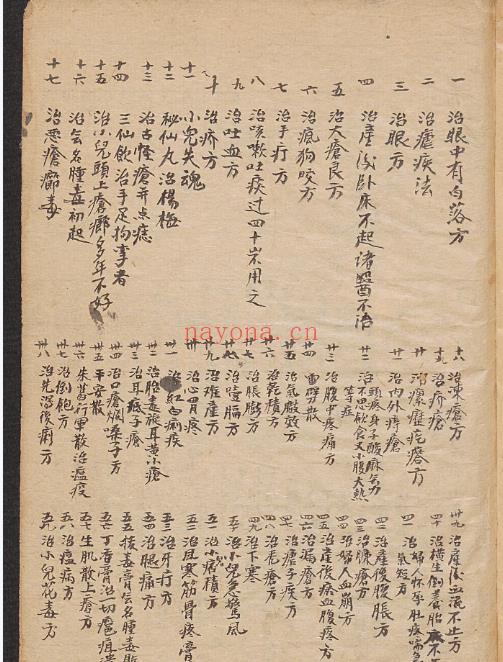 一 治眼中有白落方
二 治瘧疾法
三 治眼方
四 治產後卧床不起諸醫不治
五 治大瘡良方
六 治瘋狗咬方
七 治手疔方
八 治咳嗽吐痰过四十岁不用之
九 治吐血方
十 治疥方
十一 小兒失魂
十二 秘仙丸治楊梅
十三 治古怪瘡并点痣
十四 三仙飲治手足拘挛者
十五 治小兒頭上瘡癤多年不好
十六 治無名腫毒初起
十七 治惡瘡癤毒
十八 治凍瘡方
十九 治疥瘡
廿 治瘰癧疙瘩方
廿一 治内外痔瘡
廿二 治頭疼身子酸麻無力不思飲食又小腹大熱等症
廿三 治腹中疼痛方
廿四 雷㗸散
廿五 治氣臌效方
廿六 治乾積方
廿七 治脹膨方
廿八 治噎膈方
廿九 治难產方
卅 治心胃疼
卅一 治紅白痢疾
卅二 治胎毒旋耳黄水瘡
卅三 治耳底子瘡
卅四 治口瘡爛嗓子方
卅五 平安散
卅六 朱葛行軍散治瘟疫
卅七 治倒飽方
卅八 治先瀉後痢方
卅九 治產後血流不止方
四十 治横生倒養胎衣不
四一 治婦人怀孕肚疾喘
氣短方
四二 治產後腹脹方
四三 治臁瘡方
四四 治婦人血崩方
四五 治產後瘀血腹疼方
四六 治漏瘡方
四七 治瘧子疾方
四八 治禿瘡方
四九 治下寒
五十 治小兒急驚風
五一 治小兒積方
五二 治風寒筋骨疼膏
五三 治牙疔方
五四 治腿痛方
五五 拔毒膏治無名腫毒
五六 丁香膏治切瘡疽
五七 生肌散上瘡方
五八 治瘟病方
五九 治小兒花毒方
nayona.cn